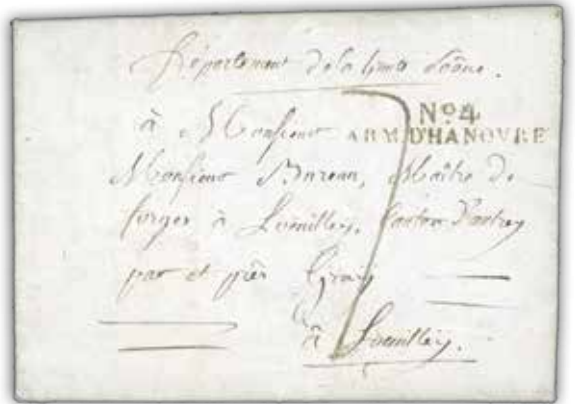 Département de la haute Saône.
à Monsieur
No. 4
ARM. D'HANOVRE
Monsieur Bureau, Maître de
forges à Loeuilley, Canton d'autrey
par et près Gray
7
à Loeuilley.